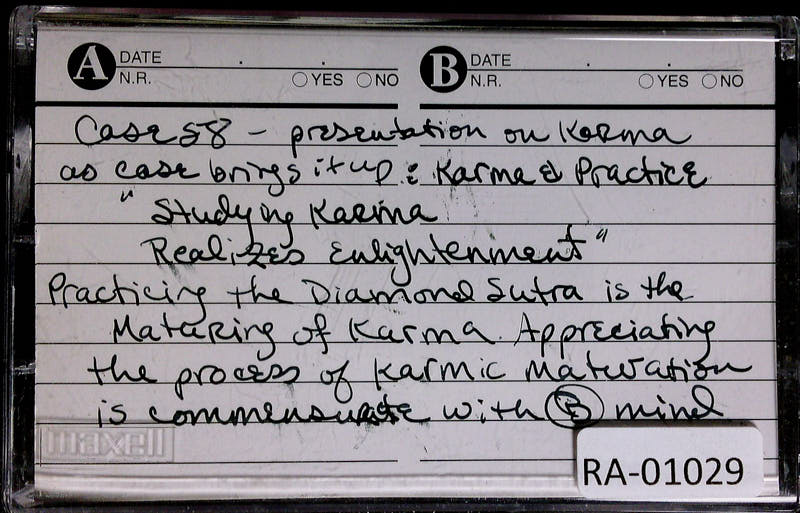 A DATE
N.R. YES NO
B DATE
N.R. YES NO
Case 58 - presentation on Karma
as case brings it up : Karma & Practice
"Studying Karma
Realizes Enlightenment"
Practicing the Diamond Sutra is the
Maturing of Karma. Appreciating
the process of Karmic maturation
is commensurate with B mind
maxell
RA-01029